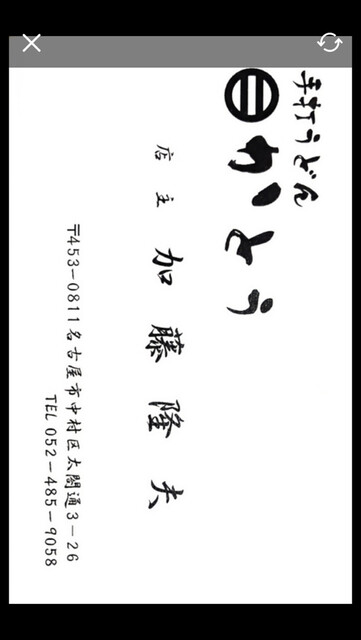 手打うどん
かとう
店主 加藤隆夫
〒453-0811名古屋市中村区太閤通3-26
TEL 052-485-9058